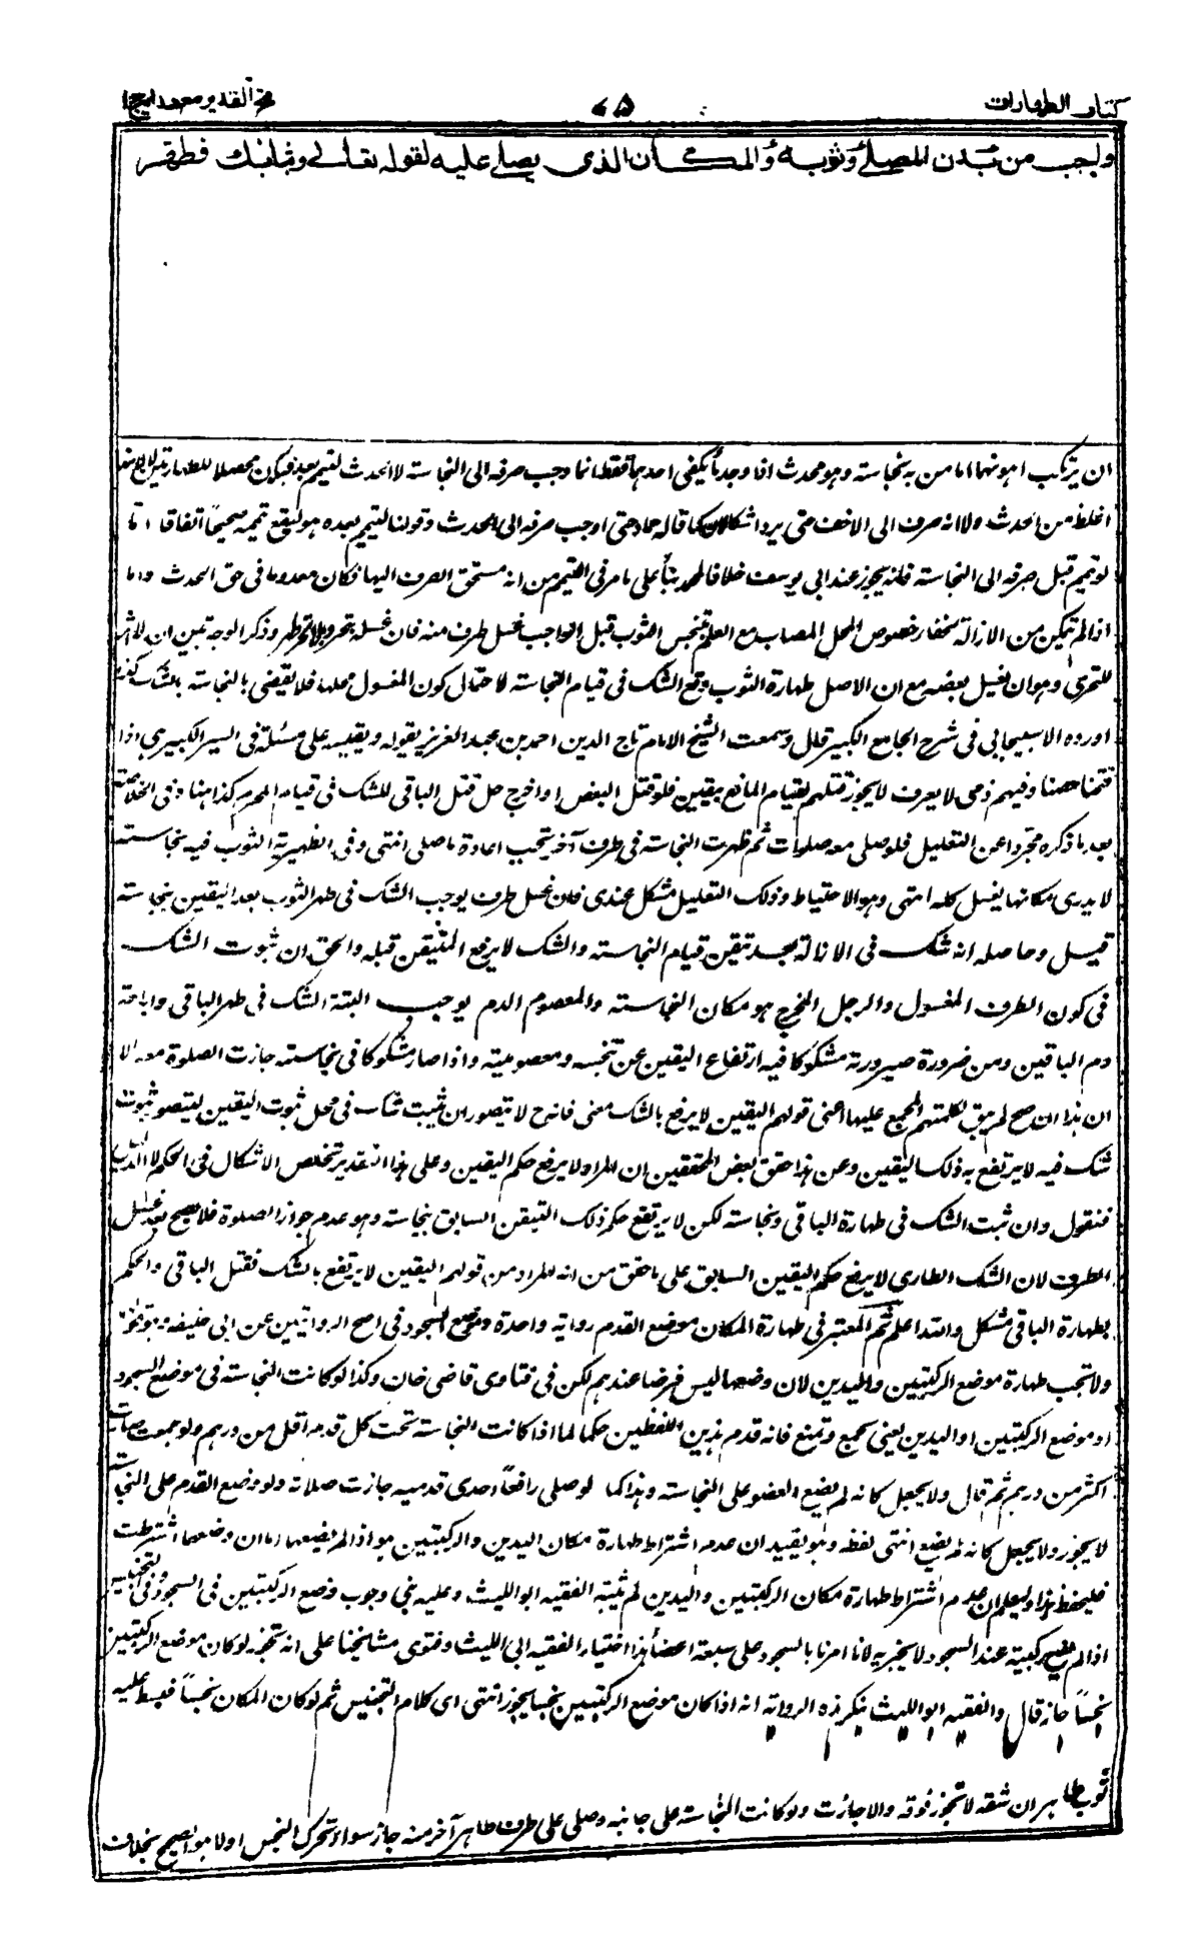 كتاب الطهارات
٧٥
فتح القدير مع هدايه ج ١
واجب من بدن المصلى وثوبه والمكان الذى يصلى عليه لقوله تعالى وثيابك فطهر
ان يرتكب اهونهما اما من به نجاسة وهو محدث اذا وجد ما يكفى احدهما فقط انما وجب صرفه الى النجاسة لا الحدث ليتيمم بعده فيكون محصلا للطهارتين لا لانها
اغلظ من الحدث ولا انه صرف الى الاخف حتى يرد اشكالا كما قاله حماد حتى اوجب صرفه الى الحدث وقولنا ليتيمم بعده هو ليقع تيممه صحيحا اتفاقا اما
لو تيمم قبل صرفه الى النجاسة فانه يجوز عند ابى يوسف خلافا لمحمد بناء على ما مر فى التيمم من انه مستحق الصرف اليها فكان معدوما فى حق الحدث واما
اذا لم يتمكن من الازالة لخفاء خصوص المحل المصاب مع العلم بتنجس الثوب قيل الواجب غسل طرف منه فان غسله بتحر وبلا تحر طهر وذكر الوجه يبين ان لا اثر
للتحرى وهو ان يغسل بعضه مع ان الاصل طهارة الثوب وقع الشك فى قيام النجاسة لاحتمال كون المغسول محلها فلا يقضى بالنجاسة بالشك كذا
اورده الاسبيجابى فى شرح الجامع الكبير قال وسمعت الشيخ الامام تاج الدين احمد بن عبد العزيز يقوله ويقيسه على مسئلة فى السير الكبير هى اذا
فتحنا حصنا وفيهم ذمى لا يعرف لا يجوز قتلهم لقيام المانع بيقين فلو قتل البعض او اخرج حل قتل الباقى للشك فى قيام المحرم كذا هنا وفى الخلاصة
بعد ما ذكره مجردا عن التعليل فلو صلى معه صلوات ثم ظهرت النجاسة فى طرف آخر تجب اعادة ما صلى انتهى وفى الظهيرية الثوب فيه نجاسة
لا يدرى مكانها يغسل كله انتهى وهو الاحتياط وذلك التعليل مشكل عندى فان غسل طرف يوجب الشك فى طهر الثوب بعد اليقين بنجاسته
قيل وحاصله انه شك فى الازالة بعد تيقن قيام النجاسة والشك لا يرفع المتيقن قبله والحق ان ثبوت الشك
فى كون الطرف المغسول والرجل المخرج هو مكان النجاسة والمعصوم الدم يوجب البتة الشك فى طهر الباقى واباحة
دم الباقين ومن ضرورة صيرورته مشكوكا فيه ارتفاع اليقين عن تنجسه ومعصوميته واذا صار مشكوكا فى نجاسته جازت الصلوة معه الا
ان هذا ان صح لم يبق لكلمتهم المجمع عليها اعنى قولهم اليقين لا يرفع بالشك معنى فانه ح لا يتصور ان يثبت شك فى محل ثبوت اليقين ليتصور ثبوت
شك فيه لا يرتفع به ذلك اليقين وعن هذا حقق بعض المحققين ان المراد لا يرفع حكم اليقين وعلى هذا التقدير تخلص الاشكال فى الحكم لا الدليل
فنقول وان ثبت الشك فى طهارة الباقى ونجاسته لكن لا يرتفع حكم ذلك اليقين السابق بنجاسته وهو عدم جواز الصلوة فلا يصح بعد غسل
الطرف لان الشك الطارى لا يرفع حكم اليقين السابق على ما حقق من انه المراد من قولهم اليقين لا يرتفع بالشك فقتل الباقى والحكم
بطهارة الباقى مشكل والله اعلم ثم المعتبر فى طهارة المكان موضع القدم رواية واحدة وموضع السجود فى اصح الروايتين عن ابى حنيفة وهو قولهما
ولا تجب طهارة موضع الركبتين واليدين لان وضعهما ليس فرضا عندهم لكن فى فتاوى قاضى خان وكذا لو كانت النجاسة فى موضع السجود
او موضع الركبتين او اليدين يعنى تجمع وتمنع فانه قدم هذين اللفظين حكما لما اذا كانت النجاسة تحت كل قدم اقل من درهم ولو جمعت صارت
اكثر من درهم ثم قال ولا يجعل كانه لم يضع العضو على النجاسة وهذا كما لو صلى رافعا احدى قدميه جازت صلاته ولو وضع القدم على النجاسة
لا يجوز ولا يجعل كانه لم يضع انتهى لفظه وهو يفيد ان عدم اشتراط طهارة مكان اليدين والركبتين هو اذا لم يضعهما اما ان وضعهما اشترطت
فليحفظ هذا وليعلم ان عدم اشتراط طهارة مكان الركبتين واليدين لم يثبته الفقيه ابو الليث وعليه بنى وجوب وضع الركبتين فى السجود وفى التجنيس
اذا لم يضع ركبتيه عند السجود لا يجزيه لانا امرنا بالسجود على سبعة اعضاء هذا اختيار الفقيه ابى الليث وفتوى مشايخنا على انه تجزيه لو كان موضع الركبتين
نجسا جاز قال والفقيه ابو الليث ينكر هذه الرواية انه اذا كان موضع الركبتين نجسا يجوز انتهى اى كلام التجنيس ثم لو كان المكان نجسا فبسط عليه
ثوب طاهر ان شفه لا تجوز فوقه والا جازت ولو كانت النجاسة على جانبه وصلى على طرف طاهر آخر منه جاز سواء تحرك النجس او لا هو الصحيح بخلاف